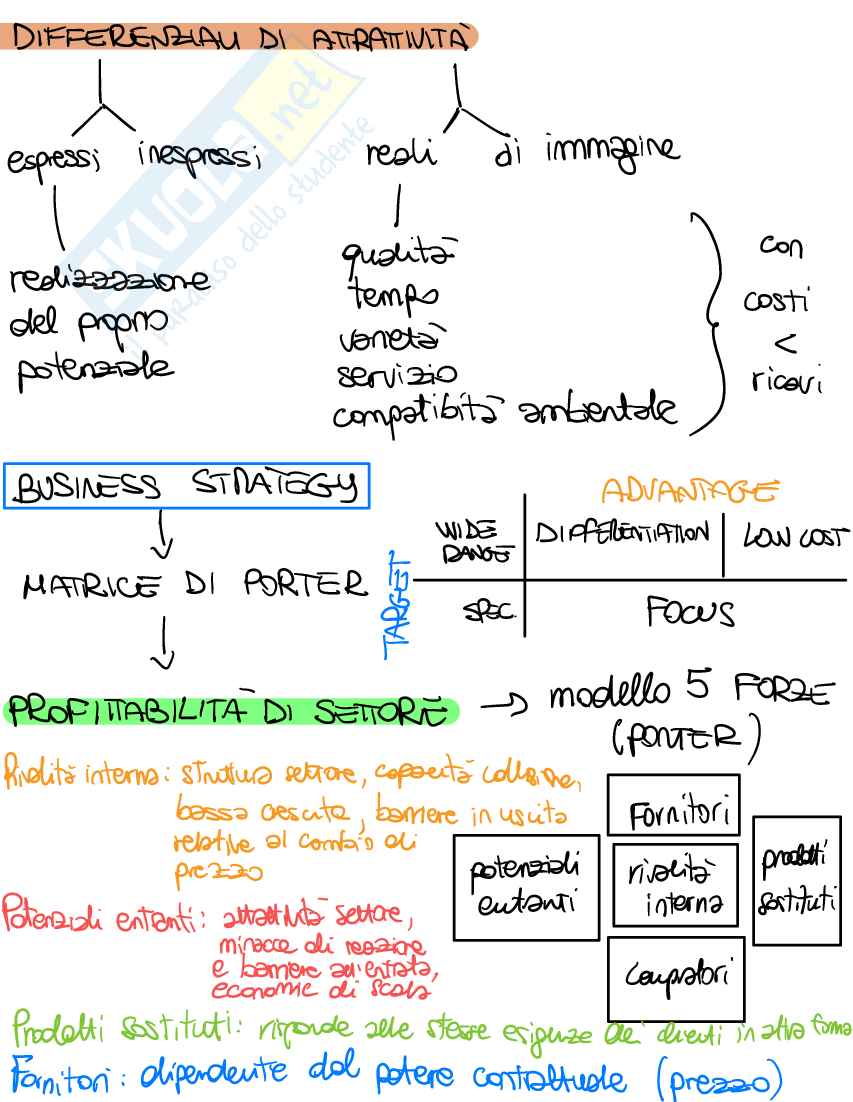 DIFFERENZIALI DI ATTRATTIVITÀ
espressi inespressi reali di immagine
realizzazione
del proprio
potenziale
qualità
tempo
varietà
servizio
compatibiltà ambientale
con
costi
<
ricavi
SKUOLA.net
il paradiso dello studente
BUSINESS STRATEGY
MATRICE DI PORTER
ADVANTAGE
TARGET
WIDE RANGE DIFFERENTIATION LOW COST
SPEC. FOCUS
PROFITTABILITÀ DI SETTORE → modello 5 FORZE
(PORTER)
Rivalità interna: struttura settore, capacità collusione,
bassa crescita, barriere in uscita
relative al cambio di
prezzo
Fornitori
potenziali
entranti
rivalità
interna
prodotti
sostituti
Compratori
Potenziali entranti: attrattività settore,
minacce di reazione
e barriere all'entrata,
economie di scala
Prodotti sostituti: risponde alle stesse esigenze dei clienti in altra forma
Fornitori: dipendente dal potere contrattuale (prezzo)